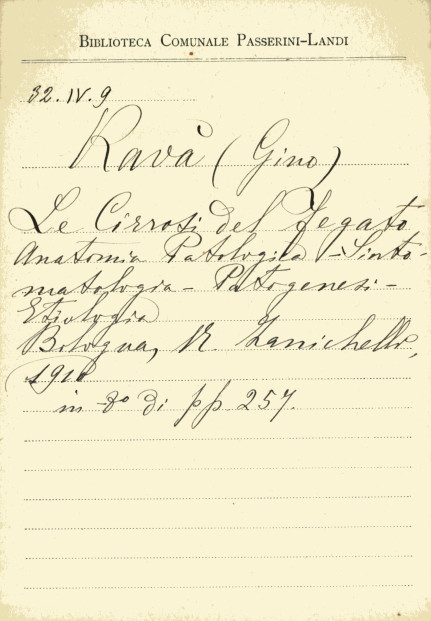 BIBLIOTECA COMUNALE PASSERINI-LANDI
32.IV.9
Ravà (Gino)
Le Cirrosi del fegato
Anatomia Patologica - Sinto-
matologia - Patogenesi -
Etiologia
Bologna, N. Zanichelli,
1910
in 8º di pp. 257.